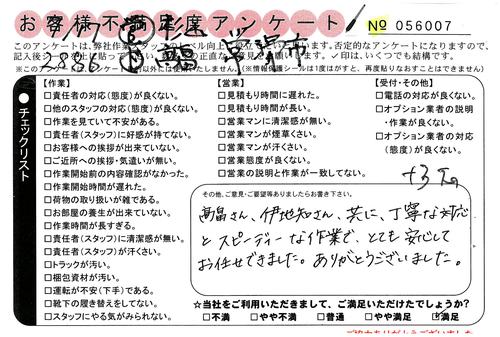 お客様不満足度アンケート
No 056007
このアンケートは、弊社作業スタッフのレベル向上
否定的なアンケートになりますので、
✓印は、いくつでも結構です。
(※情報保護シールは1度はがすと、再度貼りなおすことはできません)
●チェックリスト
【作業】
□責任者の対応(態度)が良くない。
□他のスタッフの対応(態度)が良くない。
□作業を見ていて不安がある。
□責任者(スタッフ)に好感が持てない。
□お客様への挨拶が出来ていない。
□ご近所への挨拶・気遣いが無い。
□作業開始前の内容確認がなかった。
□作業開始時間が遅れた。
□荷物の取り扱いが雑である。
□お部屋の養生が出来ていない。
□作業時間が長すぎる。
□責任者(スタッフ)に清潔感が無い。
□責任者(スタッフ)が汗くさい。
□トラックが汚い。
□梱包資材が汚い。
□運転が不安(下手)である。
□靴下の履き替えをしてない。
□スタッフにやる気がみられない。
【営業】
□見積もり時間に遅れた。
□見積もり時間が長い。
□営業マンに清潔感が無い。
□営業マンが煙草くさい。
□営業マンが汗くさい。
□営業態度が良くない。
□営業の説明と作業が一致してない。
【受付・その他】
□電話の対応が良くない。
□オプション業者の説明・作業が良くない。
□オプション業者の対応(態度)が良くない。
その他、ご意見・ご要望等ありましたらお書き下さい。
高畠さん、伊地知さん、共に、丁寧な対応
とスピーディーな作業で、とても安心して
お任せできました。ありがとうございました。
☆当社をご利用いただきまして、ご満足いただけたでしょうか?
□不満 □やや不満 □普通 □やや満足 ☑満足
ご協力ありがとうございました